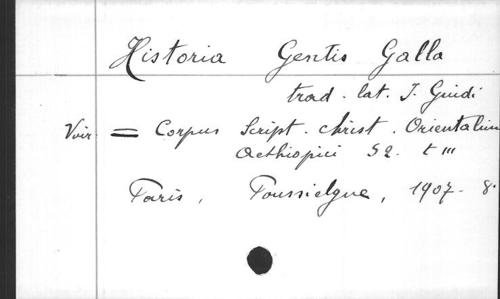 Historia Gentis Galla
trad. lat. I. Guidi
Voir = Corpus Script. christ. Orientalium
Aethiopici S2. t III
Paris, Poussielgue, 1907- 8.